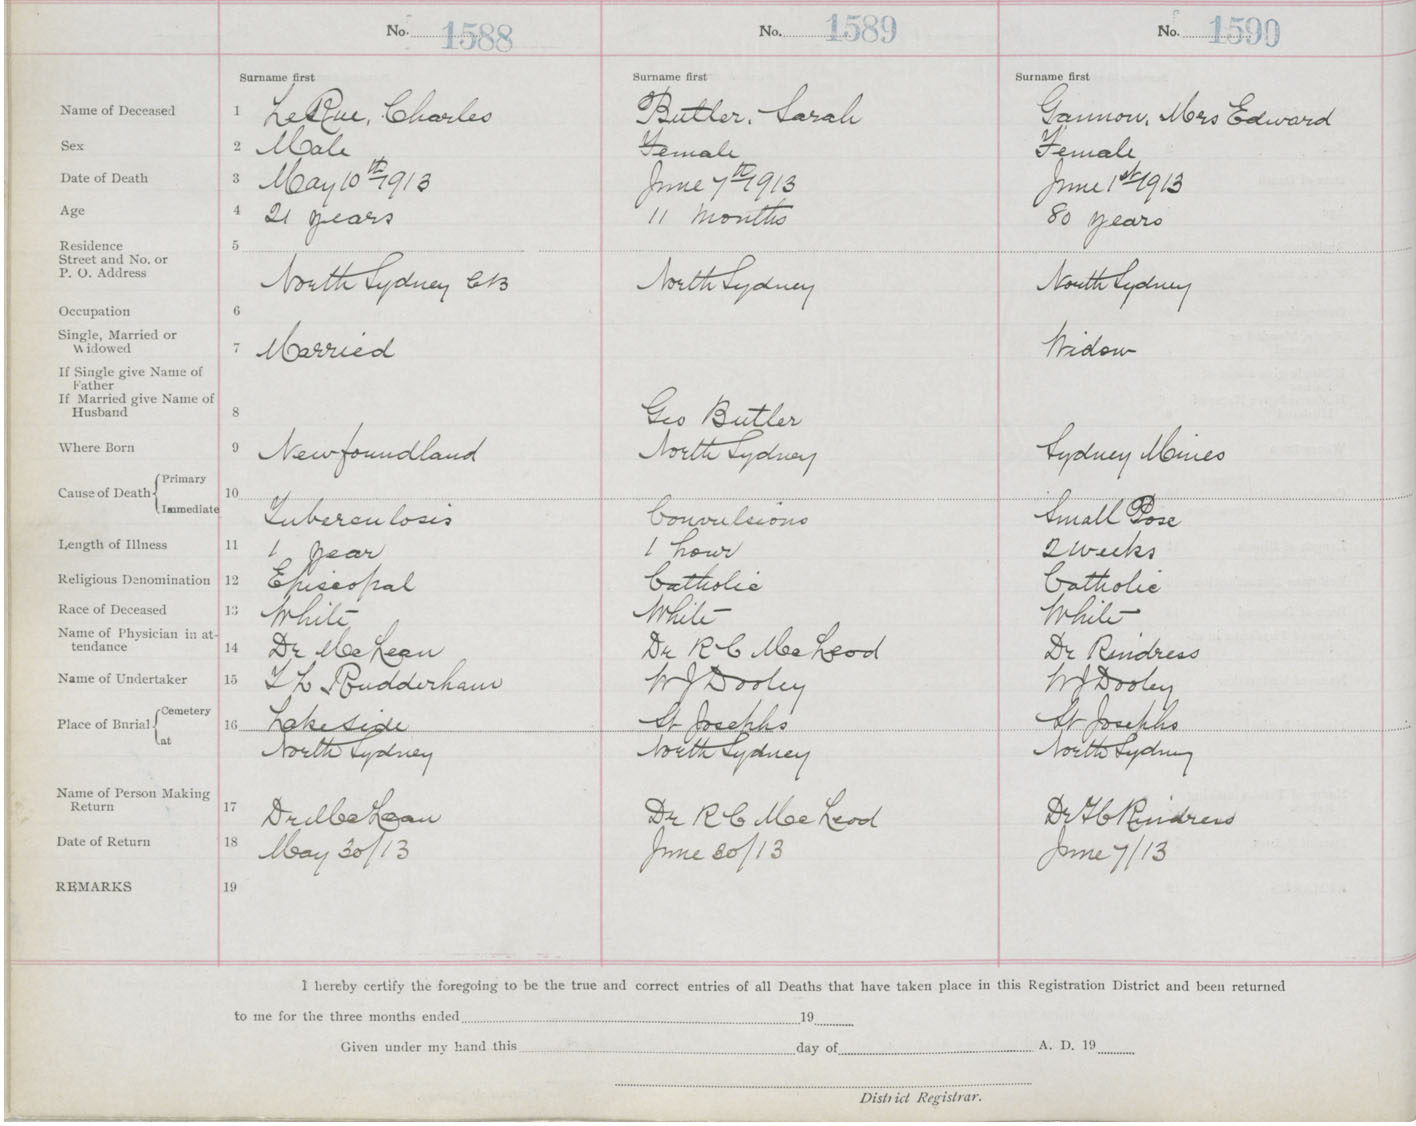 No. 1588 No. 1589 No. 1590
Surname first Surname first Surname first
Name of Deceased 1 LeRue, Charles Butler, Sarah Gannon, Mrs Edward
Sex 2 Male Female Female
Date of Death 3 May 10th 1913 June 7th 1913 June 1st 1913
Age 4 21 years 11 months 80 years
Residence 5
Street and No. or
P. O. Address North Sydney CB North Sydney North Sydney
Occupation 6
Single, Married or
Widowed 7 Married Widow
If Single give Name of
Father
If Married give Name of
Husband 8 Geo Butler
Where Born 9 Newfoundland North Sydney Sydney Mines
Primary
Cause of Death 10
Immediate Tuberculosis Convulsions Small Pose
Length of Illness 11 1 year 1 hour 2 weeks
Religious Denomination 12 Episcopal Catholic Catholic
Race of Deceased 13 White White White
Name of Physician in at-
tendance 14 Dr McLean Dr R C McLeod Dr Rindress
Name of Undertaker 15 T L Rudderham W J Dooley W J Dooley
Cemetery
Place of Burial 16 Lakeside St Josephs St Josephs
at North Sydney North Sydney North Sydney
Name of Person Making
Return 17 Dr McLean Dr R C McLeod Dr Rindress
Date of Return 18 May 30/13 June 30/13 June 7/13
REMARKS 19
I hereby certify the foregoing to be the true and correct entries of all Deaths that have taken place in this Registration District and been returned
to me for the three months ended 19
Given under my hand this day of A. D. 19
District Registrar.